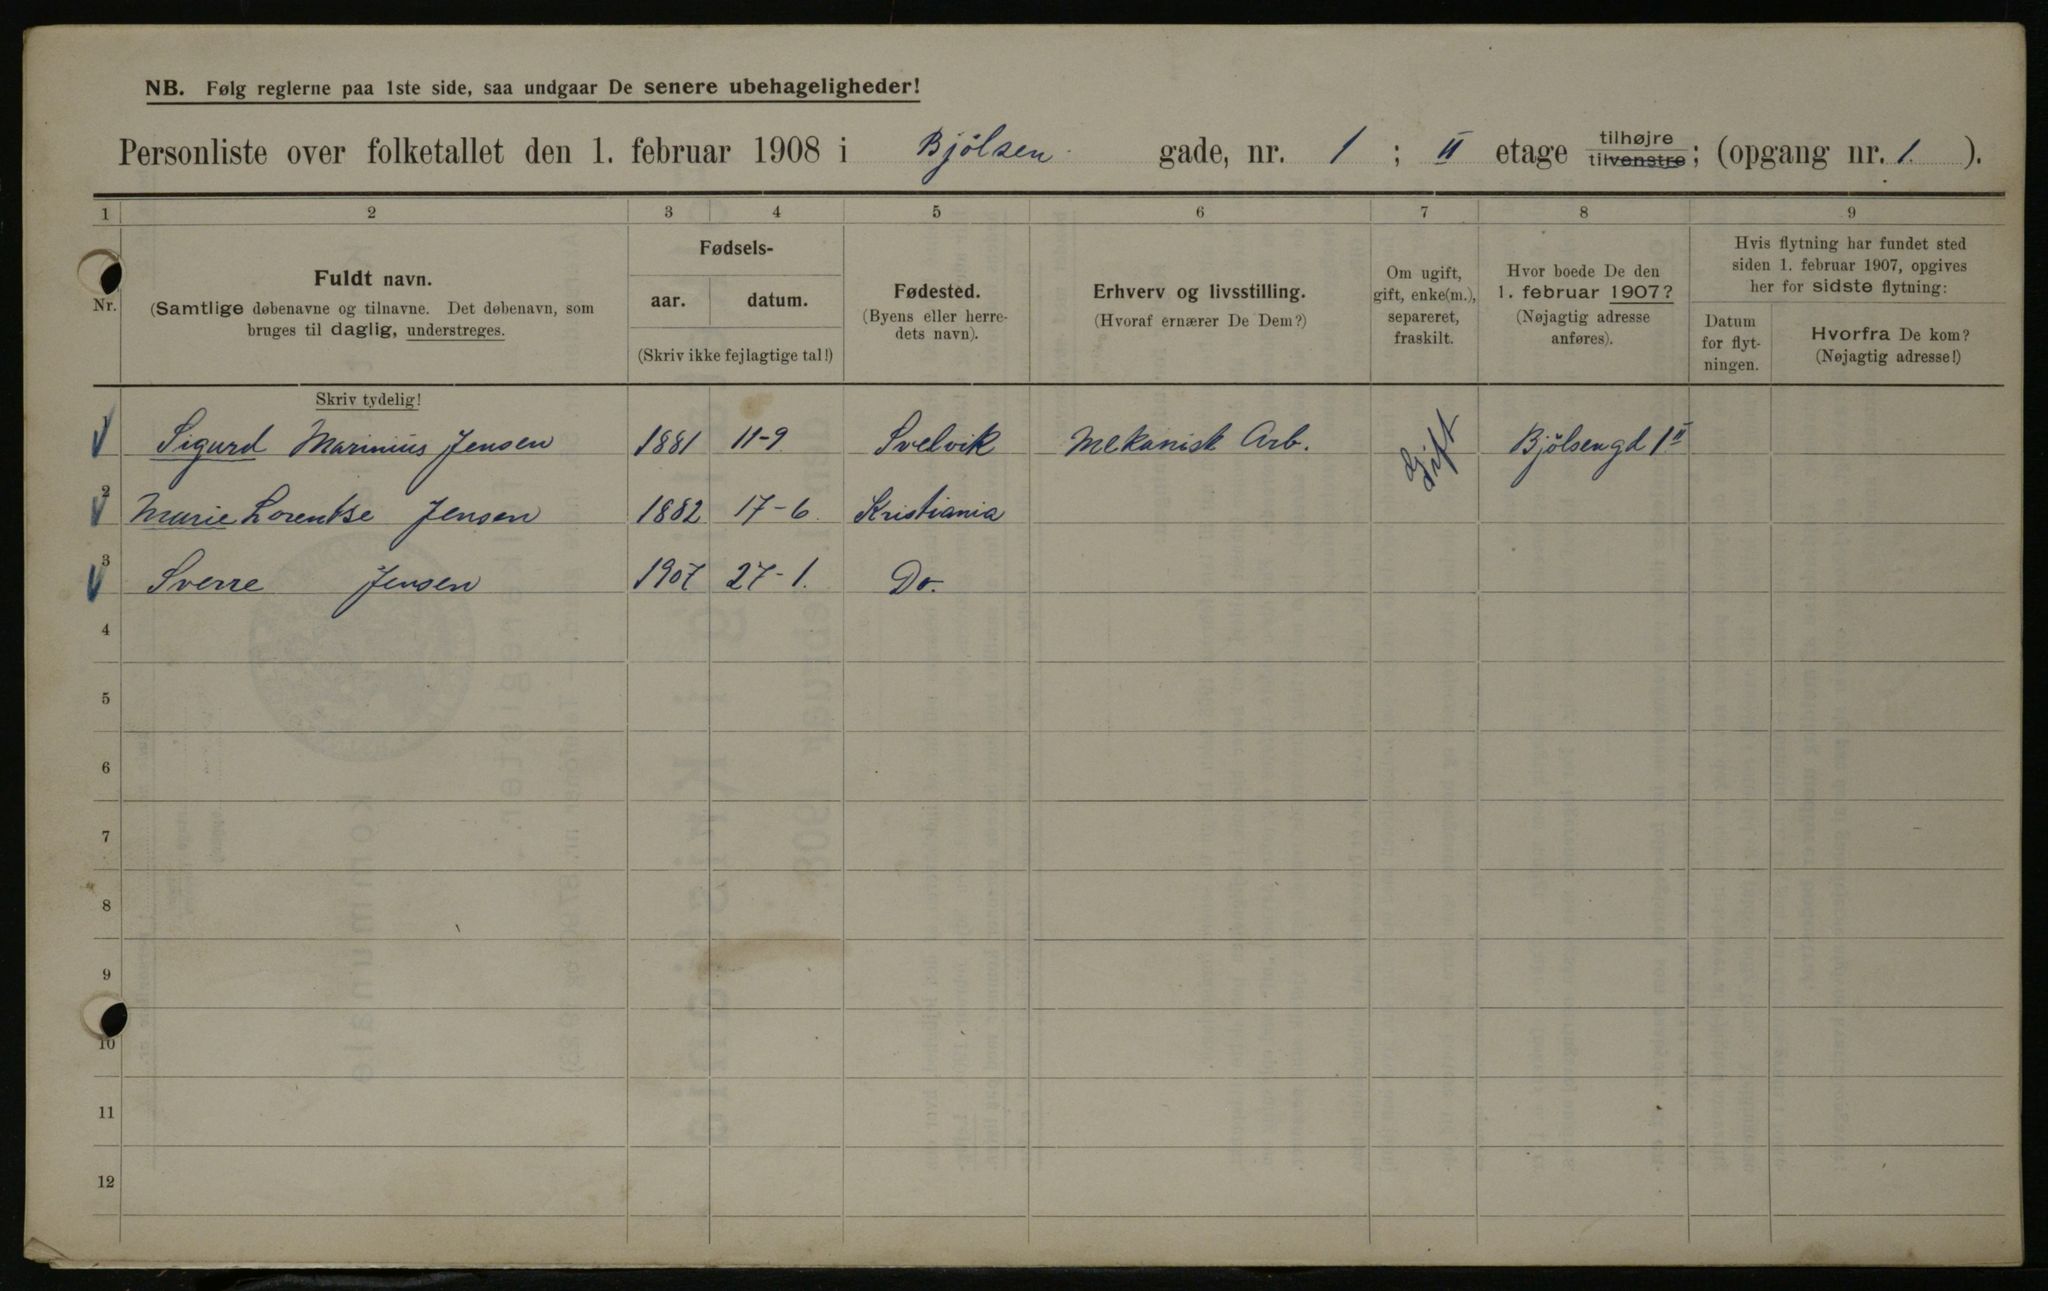 NB. Følg reglerne paa 1ste side, saa undgaar De senere ubehageligheder!
Personliste over folketallet den 1. februar 1908 i Bjölsen gade, nr. 1 ; II etage tilhøjre tilvenstre; (opgang nr. 1. ).
1 2 3 4 5 6 7 8 9
Nr.
Fuldt navn.
(Samtlige døbenavne og tilnavne. Det døbenavn, som
bruges til daglig, understreges.
Skriv tydelig!
Fødsels-
aar. datum.
(Skriv ikke fejlagtige tal!)
Fødested.
(Byens eller herre-
dets navn).
Erhverv og livsstilling.
(Hvoraf ernærer De Dem?)
Om ugift,
gift, enke(m.),
separeret,
fraskilt.
Hvor boede De den
1. februar 1907?
(Nøjagtig adresse
anføres).
Hvis flytning har fundet sted
siden 1. februar 1907, opgives
her for sidste flytning:
Datum
for flyt-
ningen.
Hvorfra De kom?
(Nøjagtig adresse!)
1 Sigurd Marinius Jensen 1881 11-9 Svelvik Mekanisk Arb. Gift Bjölsengd 1 II
2 Marie Lorentse Jensen 1882 17-6. Kristiania
3 Sverre Jensen 1907 27-1. Do.
4
5
6
7
8
9
10
11
12